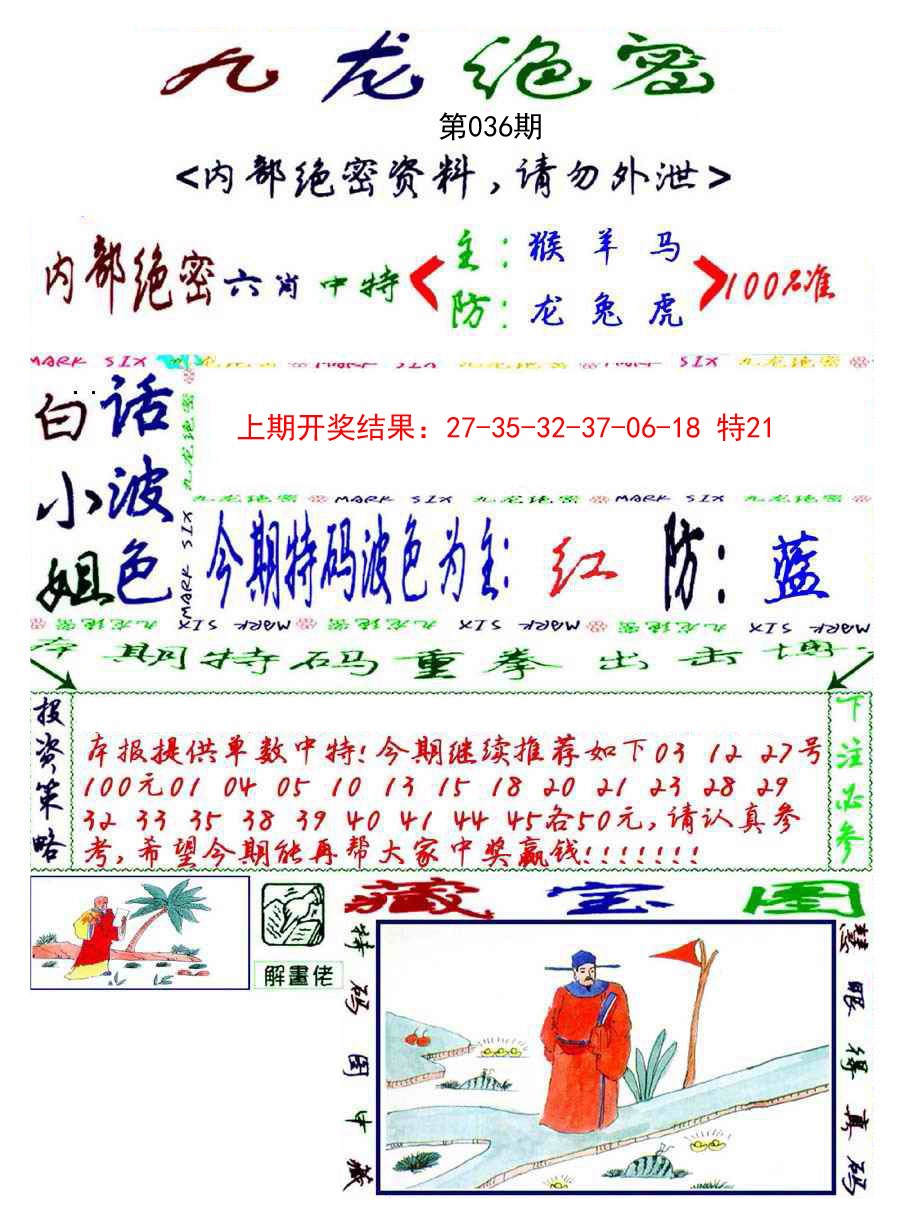 九龙绝密
第036期
<内部绝密资料,请勿外泄>
内部绝密六肖中特
主:猴羊马
防:龙兔虎
100%准
MARK SIX 九龙绝密 MARK SIX 九龙绝密 MARK SIX 九龙绝密
白小姐
话波色
九龙绝密 MARK SIX
上期开奖结果：27-35-32-37-06-18 特21
九龙绝密 MARK SIX 九龙绝密 MARK SIX 九龙绝密
今期特码波色为主:红 防:蓝
九龙绝密 MARK SIX 九龙绝密 MARK SIX 九龙绝密 MARK SIX
本期特码重拳出击博
投资策略
本报提供单数中特!今期继续推荐如下03 12 27号
100元01 04 05 10 13 15 18 20 21 23 28 29
32 33 35 38 39 40 41 44 45各50元,请认真参
考,希望今期能再帮大家中奖赢钱!!!!!!!
下注必参
解畫佬
藏宝图
特码图中藏
慧眼得真码